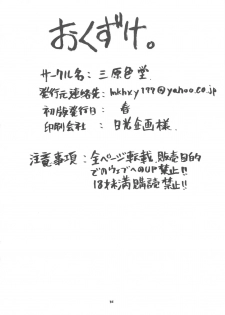 おくずけ。
サークル名：三原色堂
発行元連絡先：mkhxy177@yahoo.co.jp
初版発行日：春
印刷会社：日光企画様
注意事項：全ページ転載、販売目的
でのウェブへのUP禁止!!
18才未満購読禁止!!